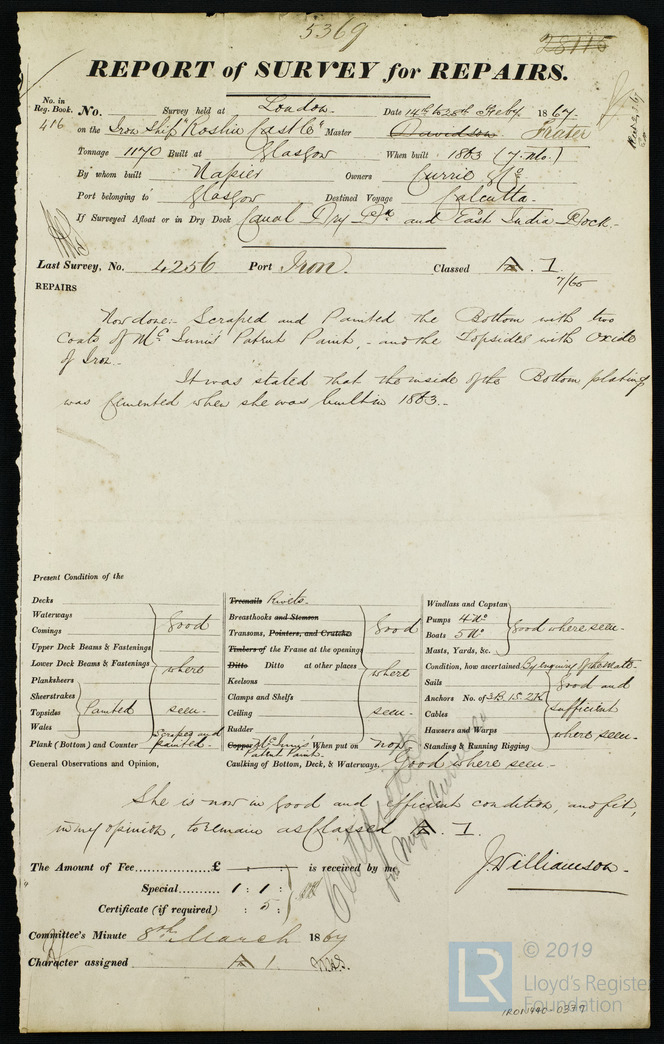 5369
28115
REPORT of SURVEY for REPAIRS.
No. in Reg. Book.
416
No. Survey held at London. Date 14th to 28th Feby 1867.
on the Iron Ship "Roslin Castle" Master Davidson Fraser
Tonnage 1170 Built at Glasgow When built 1863 (7 Mo.)
By whom built Napier Owners Currie & Co
Port belonging to Glasgow Destined Voyage Calcutta.
If Surveyed Afloat or in Dry Dock Canal Dry Dk and East India Dock.
Last Survey, No. 4256 Port Iron. Classed A. 1.
7/65
REPAIRS
Now done:- Scraped and Painted the Bottom with two
coats of Mc Innis' Patent Paint, - and the Topsides with Oxide
of Iron.
It was stated that the inside of the Bottom plating
was cemented when she was built in 1863.-
Present Condition of the
Decks
Waterways
Comings
Upper Deck Beams & Fastenings
Lower Deck Beams & Fastenings
Planksheers
Sheerstrakes
Topsides Painted
Wales
Plank (Bottom) and Counter Scraped and painted.
good where seen.
General Observations and Opinion,
Treenails Rivets.
Breasthooks and Stemson
Transoms, Pointers, and Crutches
Timbers of the Frame at the openings
Ditto Ditto at other places
Keelsons
Clamps and Shelfs
Ceiling
Rudder
good where seen.
Copper Mc Innis' Patent Paint. When put on now
Caulking of Bottom, Deck, & Waterways, Good where seen.
Windlass and Capstan
Pumps 4 No
Boats 5 No
Masts, Yards, &c.
good where seen.
Condition, how ascertained By enquiry of the mate.
Sails
Anchors No. of 3B. 1S. 2K
Cables
Hawsers and Warps
Standing & Running Rigging
good and sufficient where seen.
She is now in good and efficient condition, and fit,
in my opinion, to remain as Classed A. 1.
J. Williamson.
The Amount of Fee £ is received by me,
Special 1 : 1 :
Certificate (if required) : 5 :
Committee's Minute 8th March 1867
Character assigned A 1.
© 2019
LR
Lloyd's Register
Foundation
IRON1990-0377